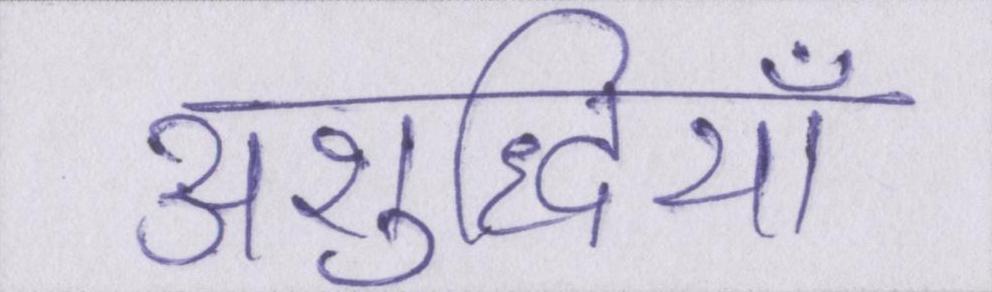 अशुद्धियाँ